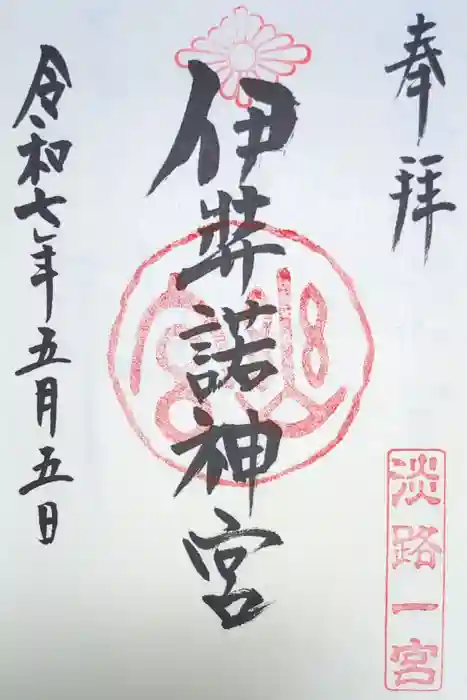 奉拝
淡路一宮
伊弉諾神宮
令和七年五月五日